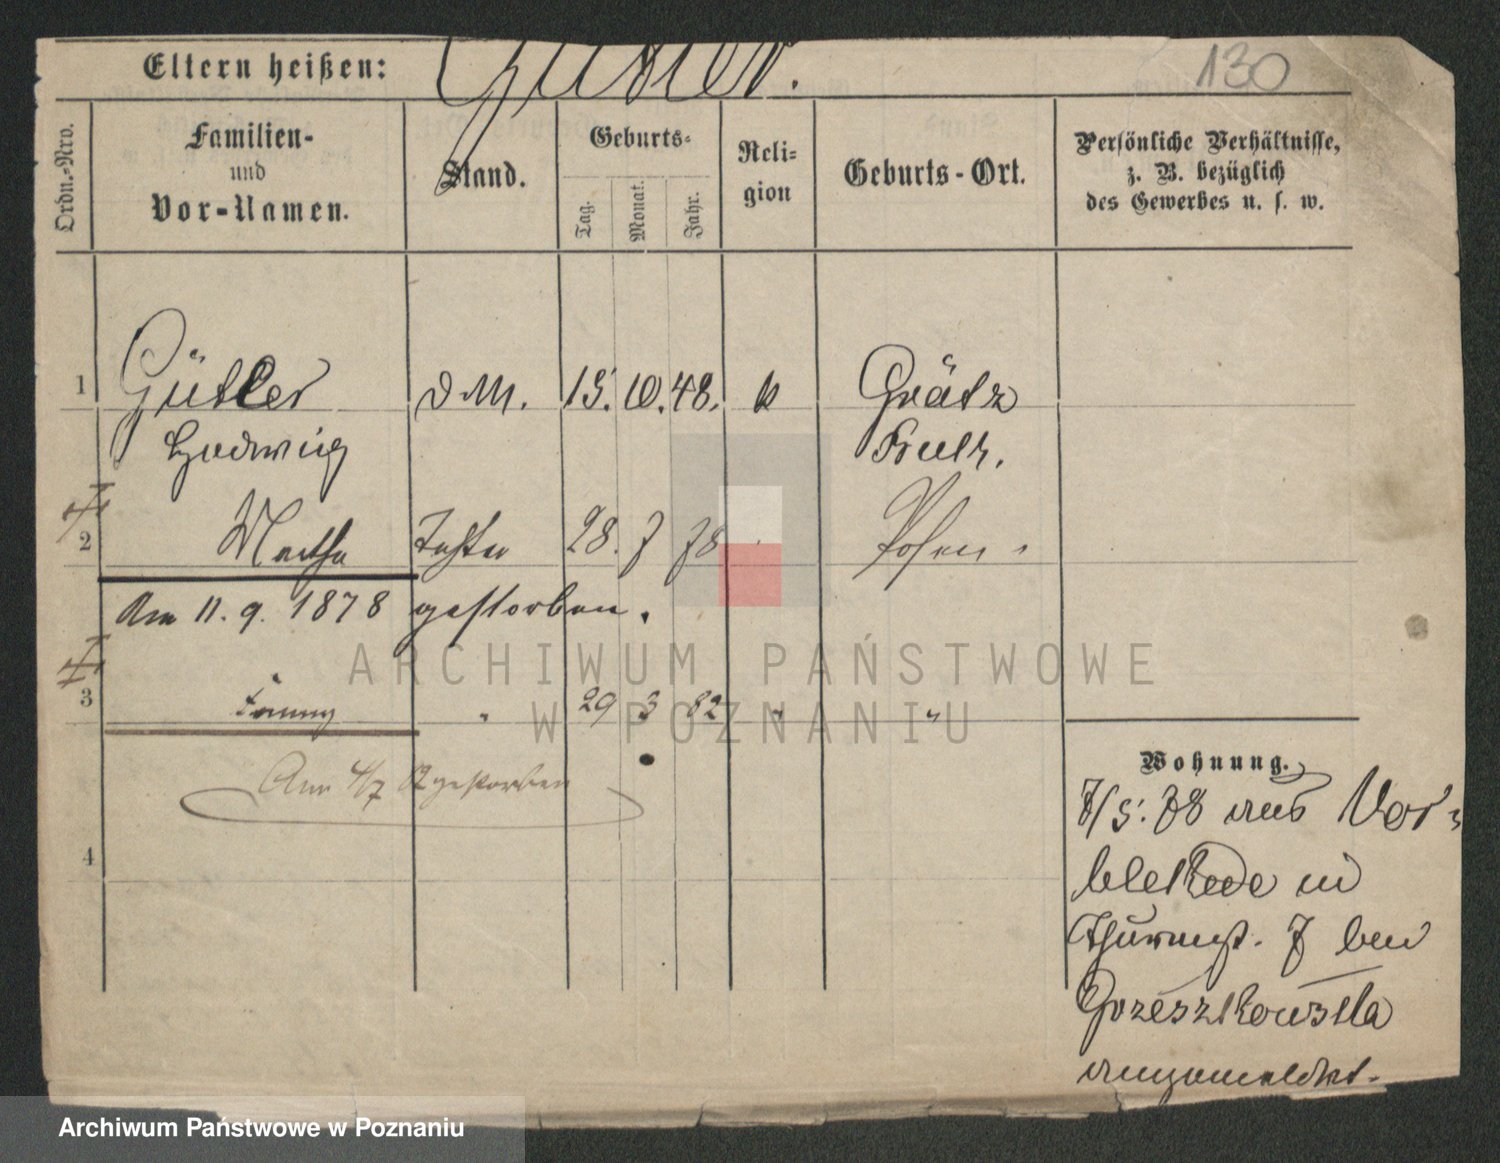 130
Eltern heißen: Gütler.
Ordn.-Nro.
Familien-
und
Vor-Namen.
Stand.
Geburts-
Tag. Monat. Jahr.
Reli-
gion
Geburts-Ort.
Persönliche Verhältnisse,
z. B. bezüglich
des Gewerbes u. s. w.
1 Gütler D. M. 15. 10. 48. k Grätz
Hedwig
2 Martha Tochter 28. 7 78 Posen
Am 11. 9. 1878 gestorben.
3 Fanny " 29 3 82 " "
Am 4/7 82 gestorben
4
Wohnung.
7/5. 78 aus Vor-
bleskede in
Thurmst. 7 bei
Grzeszkowska
angemeldet.
ARCHIWUM PAŃSTWOWE
W POZNANIU
Archiwum Państwowe w Poznaniu